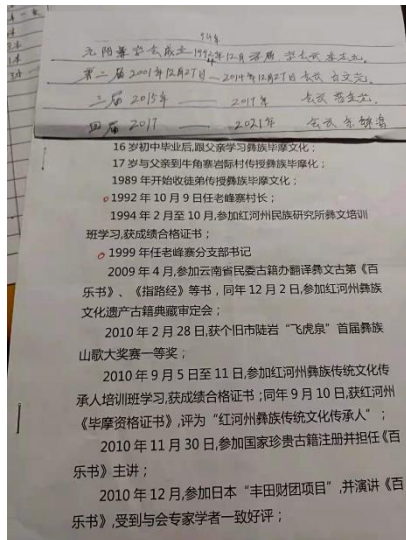 94年
元阳彝学会成立1992年12月
第二届2001年12月27日—2014年12月27日 会长 白文光.
三届 2015年 —— 2017年 会长
四届 2017 —— 2021年 会长
16岁初中毕业后,跟父亲学习彝族毕摩文化；
17岁与父亲到牛角寨岩际村传授彝族毕摩化；
1989年开始收徒弟传授彝族毕摩文化；
1992年10月9日任老峰寨村长；
1994年2月至10月,参加红河州民族研究所彝文培训
班学习,获成绩合格证书；
1999年任老峰寨分支部书记
2009年4月,参加云南省民委古籍办翻译彝文古第《百
乐书》、《指路经》等书，同年12月2日,参加红河州彝族
文化遗产古籍典藏审定会；
2010年2月28日,获个旧市陡岩“飞虎泉”首届彝族
山歌大奖赛一等奖；
2010年9月5日至11日,参加红河州彝族传统文化传
承人培训班学习,获成绩合格证书；同年9月10日,获红河州
《毕摩资格证书》,评为“红河州彝族传统文化传承人”；
2010年11月30日,参加国家珍贵古籍注册并担任《百
乐书》主讲；
2010年12月,参加日本“丰田财团项目”,并演讲《百
乐书》,受到与会专家学者一致好评；